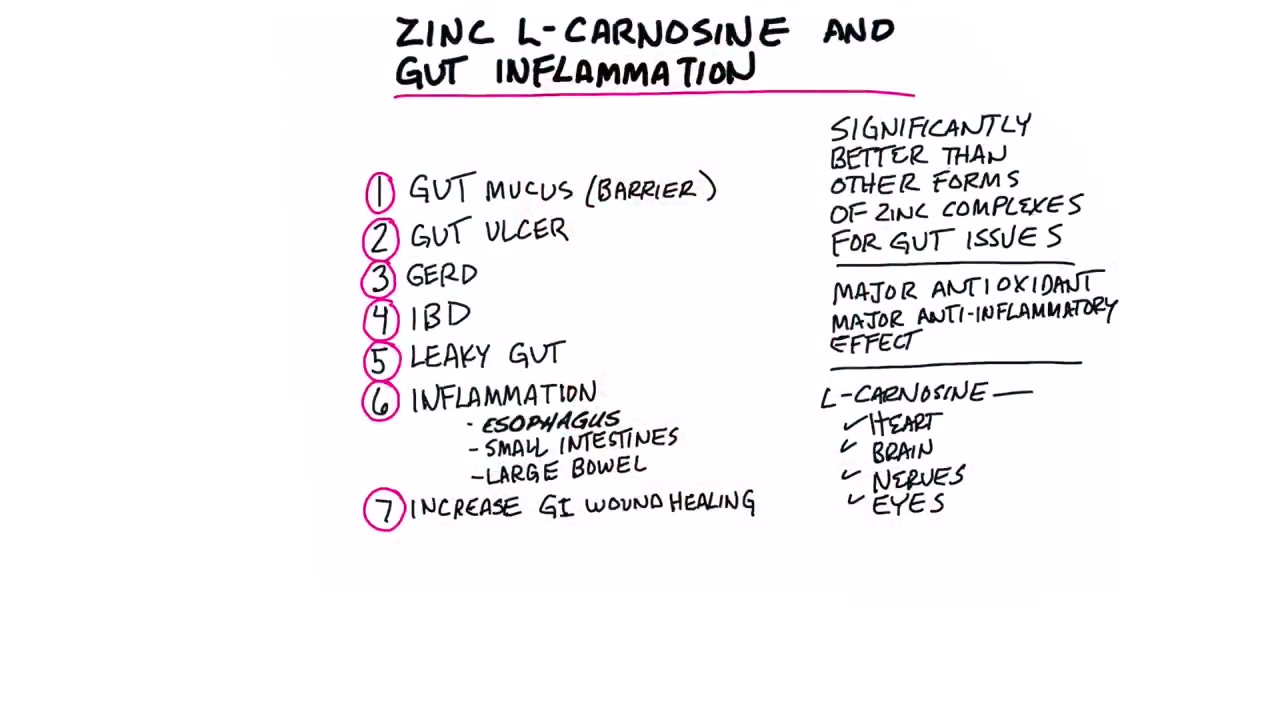 ZINC L-CARNOSINE AND
GUT INFLAMMATION
1 GUT MUCUS (BARRIER)
2 GUT ULCER
3 GERD
4 IBD
5 LEAKY GUT
6 INFLAMMATION
- ESOPHAGUS
- SMALL INTESTINES
- LARGE BOWEL
7 INCREASE GI WOUND HEALING
SIGNIFICANTLY
BETTER THAN
OTHER FORMS
OF ZINC COMPLEXES
FOR GUT ISSUES
MAJOR ANTIOXIDANT
MAJOR ANTI-INFLAMMATORY
EFFECT
L-CARNOSINE —
✓ HEART
✓ BRAIN
✓ NERVES
✓ EYES